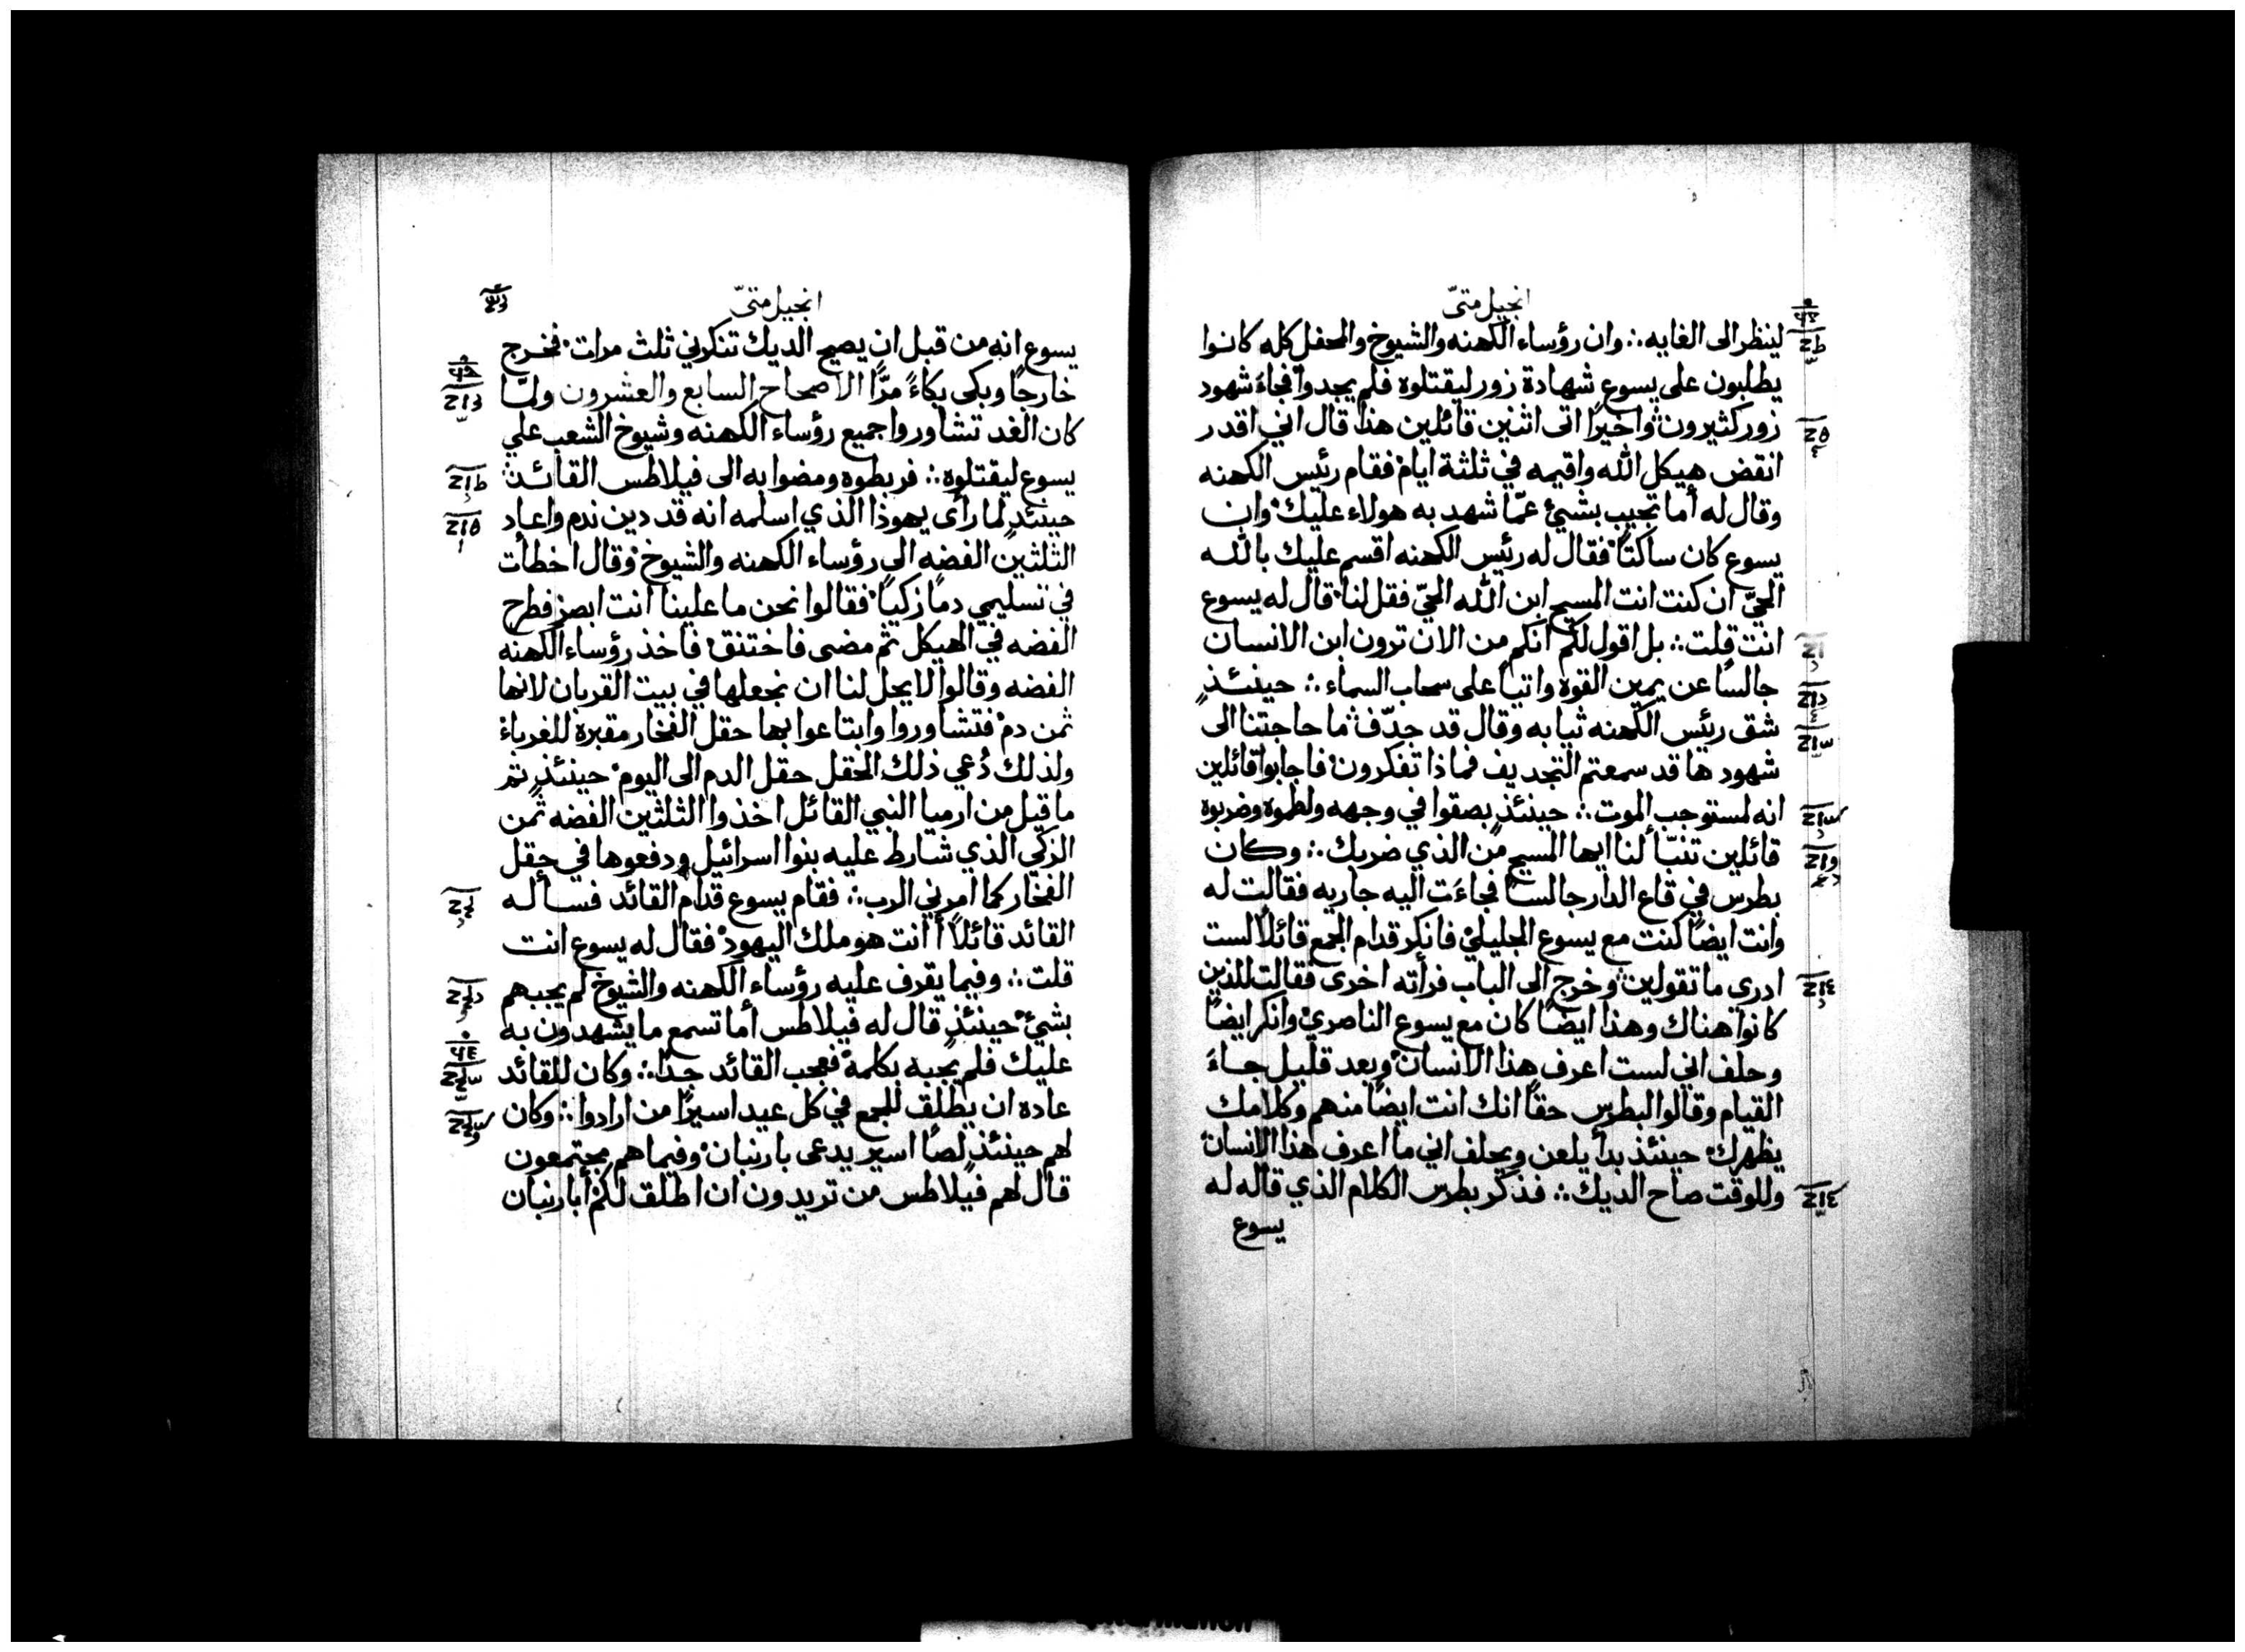 انجيل متىّ
لينظر الى الغايه ∴ وان رؤساء الكهنه والشيوخ والمحفل كله كانوا
يطلبون على يسوع شهادة زور ليقتلوه فلم يجدوا فجاءَ شهود
زور كثيرون واخيرًا اتى اثنين قائلين هذا قال اني اقدر
انقض هيكل الله واقيمه في ثلثة ايام فقام رئيس الكهنه
وقال له أما تجيب بشيئ عمّا شهد به هولاء عليك وان
يسوع كان ساكتًا فقال له رئيس الكهنه اقسم عليك بالله
الحيّ ان كنت انت المسيح ابن الله الحيّ فقل لنا قال له يسوع
انت قلت ∴ بل اقول لكم انكم من الان ترون ابن الانسان
جالسًا عن يمين القوه واتيًا على سحاب السماء ∴ حينئذٍ
شق رئيس الكهنه ثيابه وقال قد جدّف ما حاجتنا الى
شهود ها قد سمعتم التجديف فماذا تفكرون فاجابوا قائلين
انه لمستوجب الموت ∴ حينئذٍ بصقوا في وجهه ولطموه وضربوه
قائلين تنبّأ لنا ايها المسيح من الذي ضربك ∴ وكان
بطرس في قاع الدار جالسًا فجاءَت اليه جاريه فقالت له
وانت ايضًا كنت مع يسوع الجليلي فانكر قدام الجمع قائلاً لست
ادري ما تقولين وخرج الى الباب فرأته اخرى فقالت للذين
كانوا هناك وهذا ايضًا كان مع يسوع الناصري وانكر ايضًا
وحلف اني لست اعرف هذا الانسان وبعد قليل جاءَ
القيام وقالوا لبطرس حقًا انك انت ايضًا منهم وكلامك
يظهرك حينئذ بدأ يلعن ويحلف اني ما اعرف هذا الانسان
وللوقت صاح الديك ∴ فذكر بطرس الكلام الذي قاله له
يسوع
انجيل متىّ
يسوع انه من قبل ان يصيح الديك تنكرني ثلث مرات فخرج
خارجًا وبكى بكاءً مرًّا الاصحاح السابع والعشرون ولمّا
كان الغد تشاوروا جميع رؤساء الكهنه وشيوخ الشعب علي
يسوع ليقتلوه ∴ فربطوه ومضوا به الى فيلاطس القائد
حينئذٍ لما رأى يهوذا الذي اسلمه انه قد دين ندم واعاد
الثلثين الفضه الى رؤساء الكهنه والشيوخ وقال اخطأت
في تسليمي دمًا زكيًا فقالوا نحن ما علينا انت ابصر فطرح
الفضه في الهيكل ثم مضى فاختنق فاخذ رؤساء الكهنه
الفضه وقالوا لا يحل لنا ان نجعلها في بيت القربان لانها
ثمن دم فتشاوروا وابتاعوا بها حقل الفخار مقبرة للغرباءِ
ولذلك دُعي ذلك الحقل حقل الدم الى اليوم حينئذٍ تم
ما قيل من ارميا النبي القائل اخذوا الثلثين الفضه ثمن
الزكي الذي شارط عليه بنوا اسرائيل ودفعوها في حقل
الفخار كما امرني الرب ∴ فقام يسوع قدام القائد فسأله
القائد قائلاً أأنت هو ملك اليهود فقال له يسوع انت
قلت ∴ وفيما يقرف عليه رؤساء الكهنه والشيوخ لم يجبهم
بشيٍ حينئذٍ قال له فيلاطس أما تسمع ما يشهدون به
عليك فلم يجبه بكلمة فعجب القائد جدًا ∴ وكان للقائد
عاده ان يطلق للجمع في كل عيد اسيرًا من ارادوا ∴ وكان
لهم حينئذٍ لصًا اسير يدعى باربنان وفيما هم مجتمعون
قال لهم فيلاطس من تريدون ان اطلق لكم أباربنان